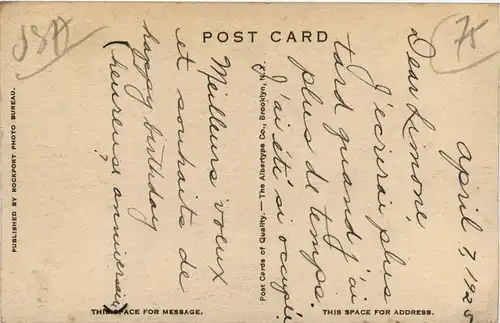 POST CARD
75
April 7, 1925
Dear Simone,
J'écrirai plus
tard quand j'ai
plus de temps.
J'ai été si occupée!
Meilleurs voeux
et souhaits de
happy birthday
(heureuse anniversaire)
?
PUBLISHED BY ROCKPORT PHOTO BUREAU.
Post Cards of Quality. — The Albertype Co., Brooklyn, N.Y.
THIS SPACE FOR MESSAGE.
THIS SPACE FOR ADDRESS.